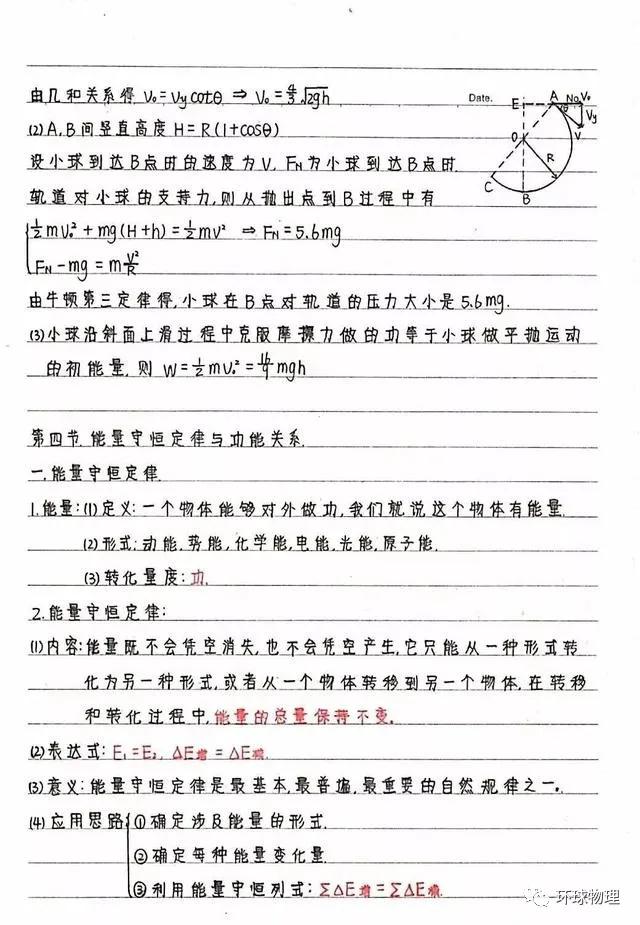 Date.
由几和关系得 V₀=Vycotθ ⇒ V₀=4/3√2gh
E A V₀ θ Vy V O R C B
(2) A,B间竖直高度 H=R(1+cosθ)
设小球到达B点时的速度为V, FN为小球到达B点时
轨道对小球的支持力,则从抛出点到B过程中有
½mV₀²+mg(H+h)=½mV² ⇒ FN=5.6mg
FN-mg=mV²/R
由牛顿第三定律得,小球在B点对轨道的压力大小是5.6mg.
(3)小球沿斜面上滑过程中克服摩擦力做的功等于小球做平抛运动
的初能量,则 W=½mV₀²=16/9mgh
第四节.能量守恒定律与功能关系.
一.能量守恒定律.
1.能量:(1)定义:一个物体能够对外做功,我们就说这个物体有能量.
(2)形式:动能,势能,化学能,电能,光能,原子能.
(3)转化量度:功.
2.能量守恒定律:
(1)内容:能量既不会凭空消失,也不会凭空产生,它只能从一种形式转
化为另一种形式,或者从一个物体转移到另一个物体,在转移
和转化过程中,能量的总量保持不变。
(2)表达式:E₁=E₂, ΔE增=ΔE减.
(3)意义:能量守恒定律是最基本,最普遍,最重要的自然规律之一。
(4)应用思路 ①确定涉及能量的形式.
②确定每种能量变化量.
③利用能量守恒列式:ΣΔE增=ΣΔE减.
环球物理